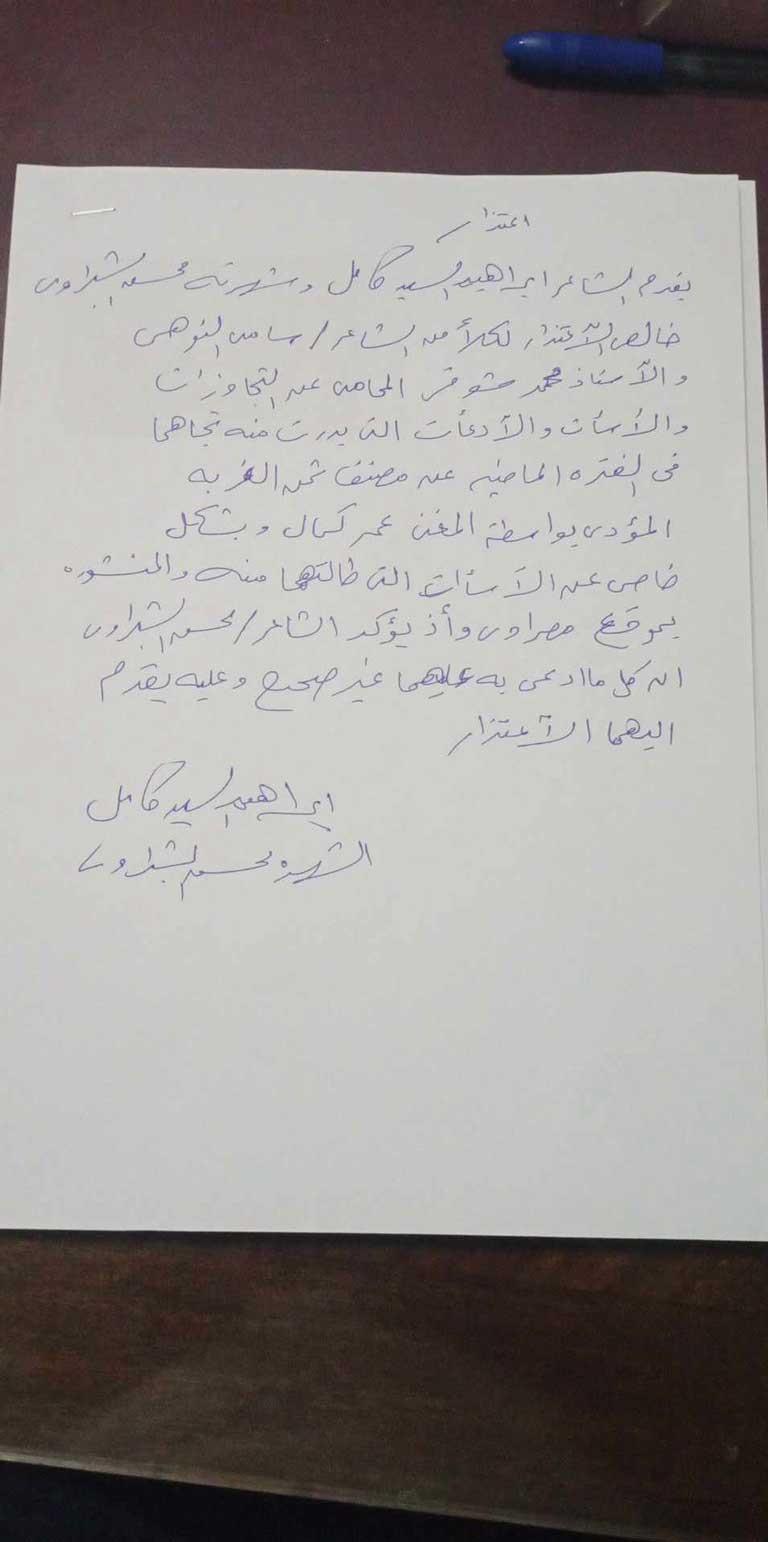 اعتذار
يقدم الشاعر ابراهيم السيد كامل وشهرته محسن الشبراوى
خالص الآعتذار لكلاً من الشاعر / سامى النوهى
والآستاذ محمد شوقى المحامى عن التجاوزات
والأسأت والأدعأت التى بدرت منه تجاهما
فى الفتره الماضيه عن مصنف ثمن الغربه
المؤدى بواسطة المغنى عمر كمال وبشكل
خاص عن الاسأت التى طالتهما منه والمنشوره
بموقع مصراوى وأذ يؤكد الشاعر / محسن الشبراوى
ان كل ما ادعى به عليهما غير صحيح وعليه يقدم
اليهما الآعتذار
ابراهيم السيد كامل
الشهره محسن الشبراوى